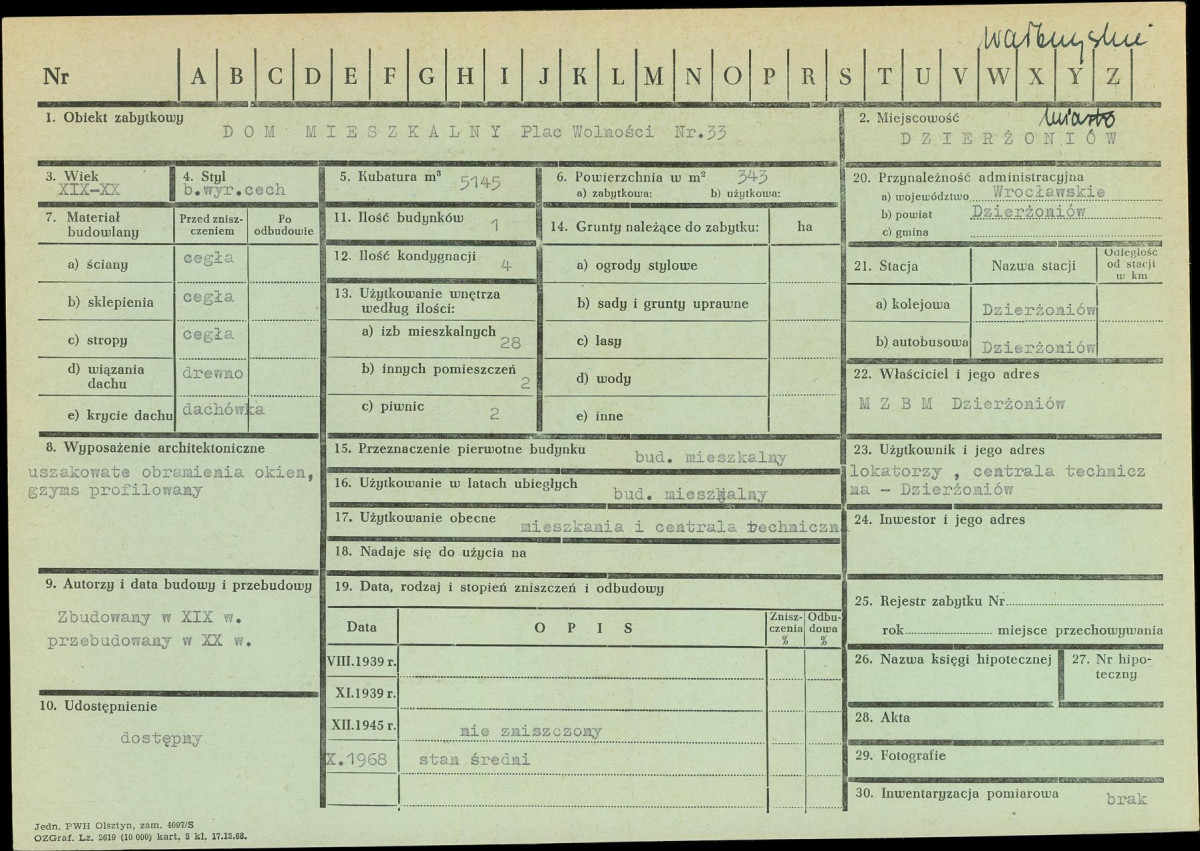 wałbrzyskie
Nr A B C D E F G H I J K L M N O P R S T U V W X Y Z
1. Obiekt zabytkowy
DOM MIESZKALNY Plac Wolności Nr.33
2. Miejscowość miasto
DZIERŻONIÓW
3. Wiek
XIX-XX
4. Styl
b.wyr.cech
5. Kubatura m³ 5145
6. Powierzchnia w m² 343
a) zabytkowa: b) użytkowa:
20. Przynależność administracyjna
a) województwo Wrocławskie
b) powiat Dzierżoniów
c) gmina
7. Materiał budowlany
Przed zniszczeniem
Po odbudowie
a) ściany cegła
b) sklepienia cegła
c) stropy cegła
d) wiązania dachu drewno
e) krycie dachu dachówka
11. Ilość budynków 1
12. Ilość kondygnacji 4
13. Użytkowanie wnętrza
według ilości:
a) izb mieszkalnych 28
b) innych pomieszczeń 2
c) piwnic 2
14. Grunty należące do zabytku: ha
a) ogrody stylowe
b) sady i grunty uprawne
c) lasy
d) wody
e) inne
21. Stacja Nazwa stacji Odległość od stacji w km
a) kolejowa Dzierżoniów
b) autobusowa Dzierżoniów
22. Właściciel i jego adres
M Z B M Dzierżoniów
8. Wyposażenie architektoniczne
uszakowate obramienia okien,
gzyms profilowany
15. Przeznaczenie pierwotne budynku bud. mieszkalny
16. Użytkowanie w latach ubiegłych bud. mieszkalny
17. Użytkowanie obecne mieszkania i centrala techniczna
18. Nadaje się do użycia na
23. Użytkownik i jego adres
lokatorzy , centrala technicz
na - Dzierżoniów
24. Inwestor i jego adres
9. Autorzy i data budowy i przebudowy
Zbudowany w XIX w.
przebudowany w XX w.
19. Data, rodzaj i stopień zniszczeń i odbudowy
Data O P I S Zniszczenia % Odbudowa %
VIII.1939 r.
XI.1939 r.
XII.1945 r. nie zniszczony
X.1968 stan średni
25. Rejestr zabytku Nr
rok miejsce przechowywania
26. Nazwa księgi hipotecznej
27. Nr hipoteczny
10. Udostępnienie
dostępny
28. Akta
29. Fotografie
30. Inwentaryzacja pomiarowa brak
Jedn. PWH Olsztyn, zam. 4097/S
OZGraf. Lz. 2619 (10 000) kart. 5 kl. 17.12.68.